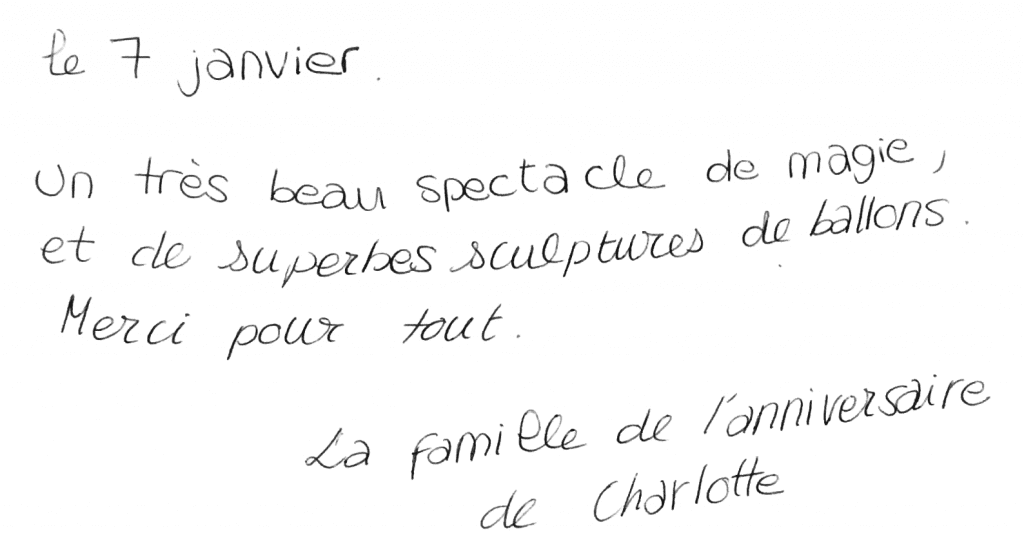 le 7 janvier.
Un très beau spectacle de magie,
et de superbes sculptures de ballons.
Merci pour tout.
La famille de l'anniversaire
de Charlotte